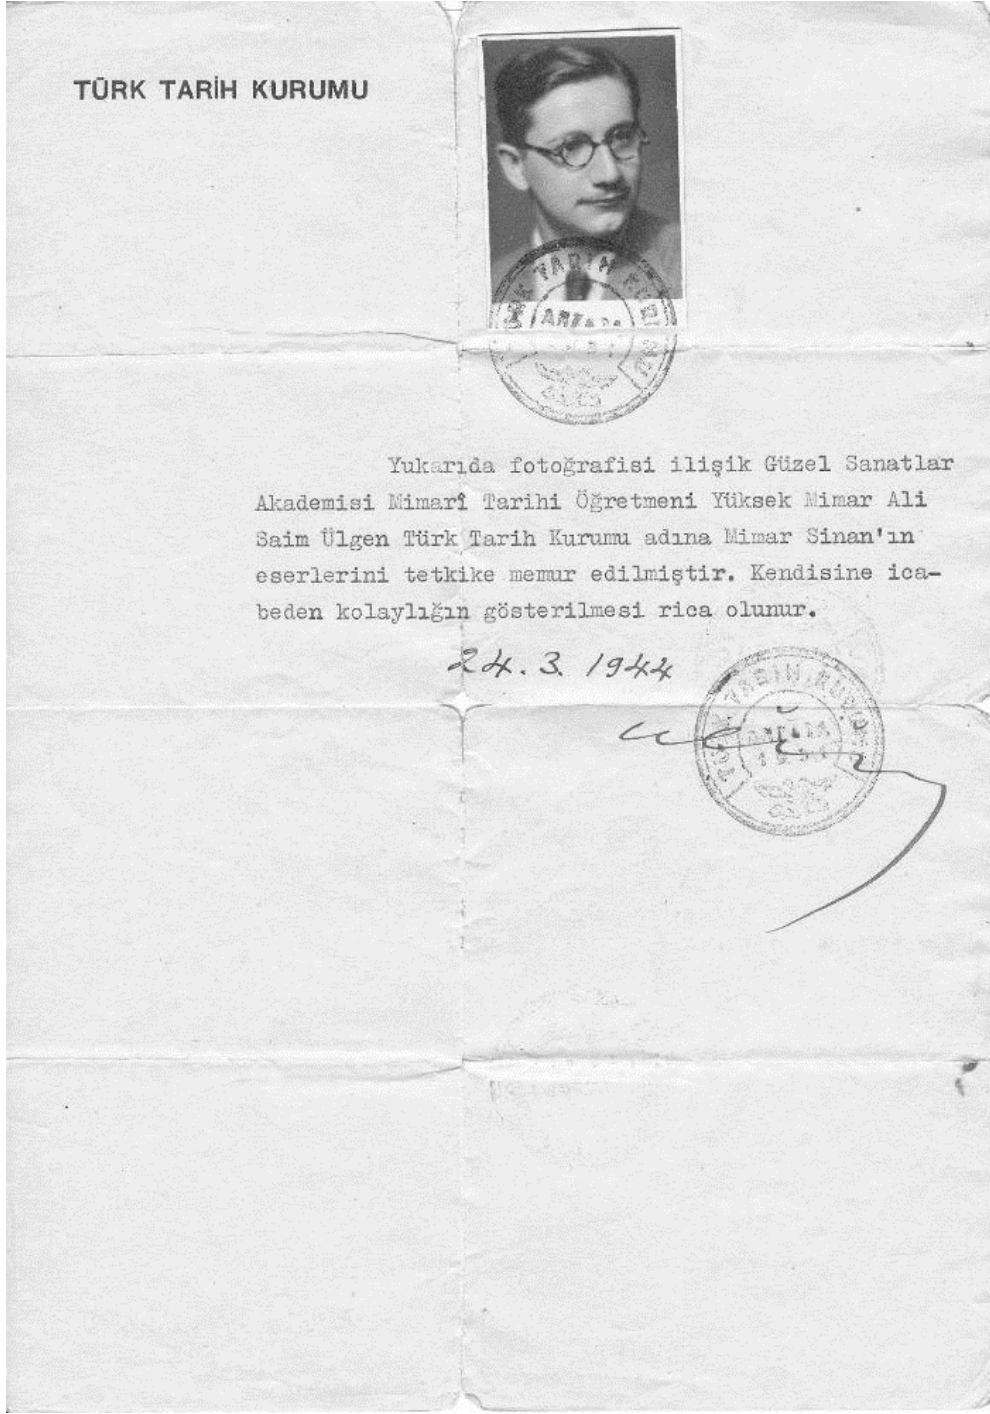 TÜRK TARİH KURUMU
TÜRK TARİH KURUMU
ANKARA
Yukarıda fotoğrafisi ilişik Güzel Sanatlar
Akademisi Mimarî Tarihi Öğretmeni Yüksek Mimar Ali
Saim Ülgen Türk Tarih Kurumu adına Mimar Sinan'ın
eserlerini tetkike memur edilmiştir. Kendisine ica-
beden kolaylığın gösterilmesi rica olunur.
24.3.1944
TÜRK TARİH KURUMU
ANKARA